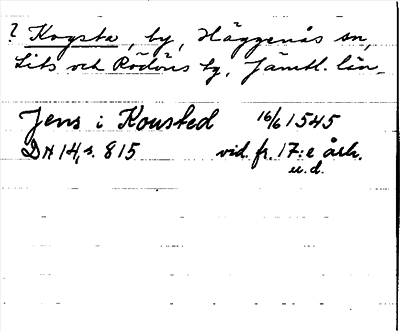 ? Kogsta, by, Häggenås sn,
Lits och Rödöns tg, Jämtl. län
Jens i Kousted 16/6 1545
DN 14, s. 815 vid. fr. 17:e årh.
u.d.